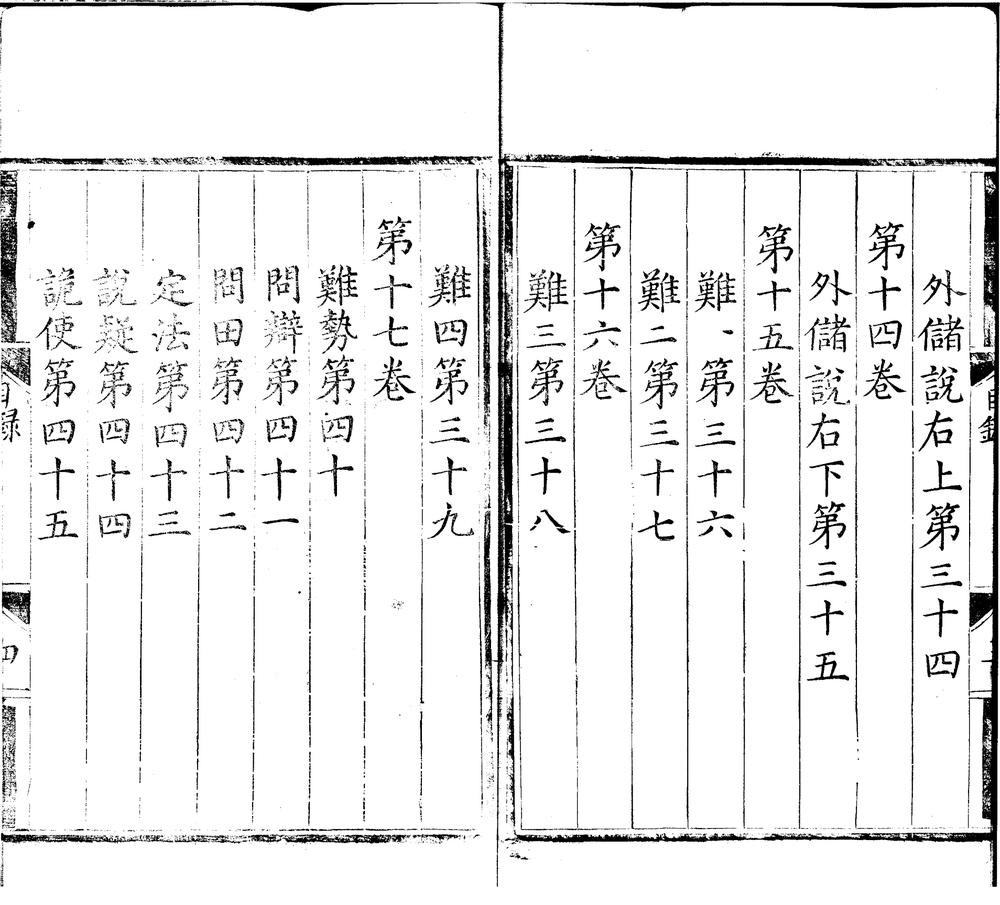 外儲說右上第三十四
第十四卷
外儲說右下第三十五
第十五卷
難一第三十六
難二第三十七
第十六卷
難三第三十八
難四第三十九
第十七卷
難勢第四十
問辯第四十一
問田第四十二
定法第四十三
說疑第四十四
詭使第四十五
目録
四